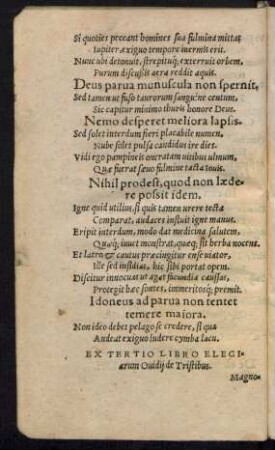 Si quoties peccant homines sua fulmina mittat
Iupiter exiguo tempore inermis erit.
Nunc ubi detonuit, strepituq́; exterruit orbem,
Purum discussis aera reddit aquis.
Deus parua munuscula non spernit,
Sed tamen ut fuso taurorum sanguine centum,
Sic capitur minimo thuris honore Deus.
Nemo desperet meliora lapsis.
Sed solet interdum fieri placabile numen,
Nube solet pulsa candidus ire dies.
Vidi ego pampineis oneratam uitibus ulmum,
Quæ fuerat sæuo fulmine tacta Iouis.
Nihil prodest, quod non læde
re possit idem.
Igne quid utilius, si quis tamen urere tecta
Comparat, audaces instruit igne manus.
Eripit interdum, modo dat medicina salutem,
Quæq́; iuuet monstrat, quæq; sit herba nocens.
Et latro & cautus præcingitur ense uiator,
Ille sed insidias, hic sibi portat opem.
Discitur innocuas ut agat facundia caussas,
Protegit hæc sontes, immeritosq́; premit.
Idoneus ad parua non tentet
temere maiora.
Non ideo debet pelago se credere, si qua
Audeat exiguo ludere cymba lacu.
EX TERTIO LIBRO ELEGI
arum Ouidij de Tristibus.
Magno